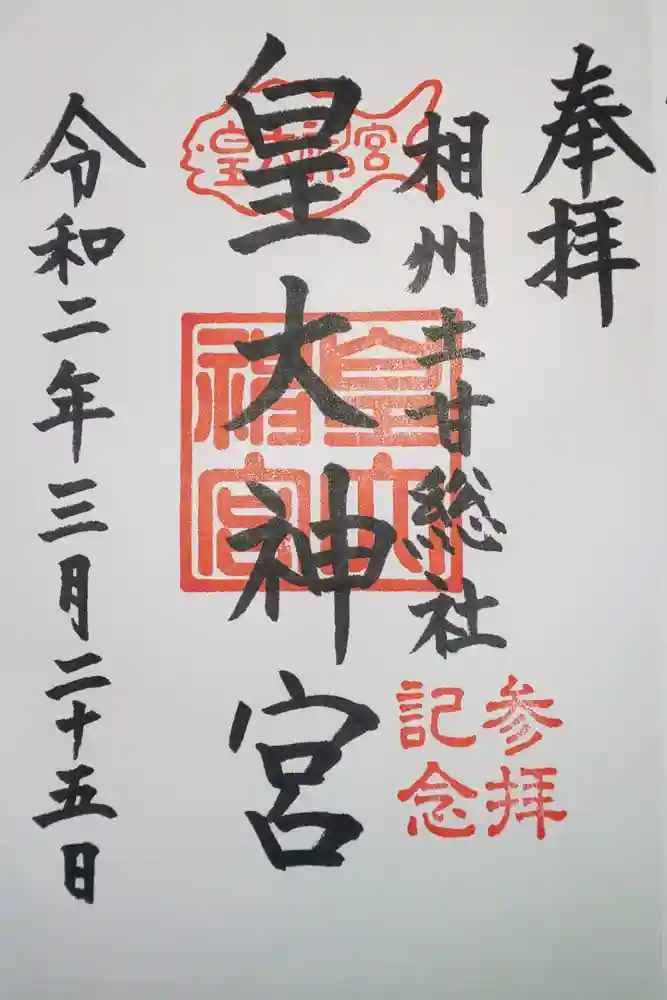 奉拝
相州土甘総社
参拝
記念
皇大神宮
皇大神宮
皇大
神宮
令和二年三月二十五日